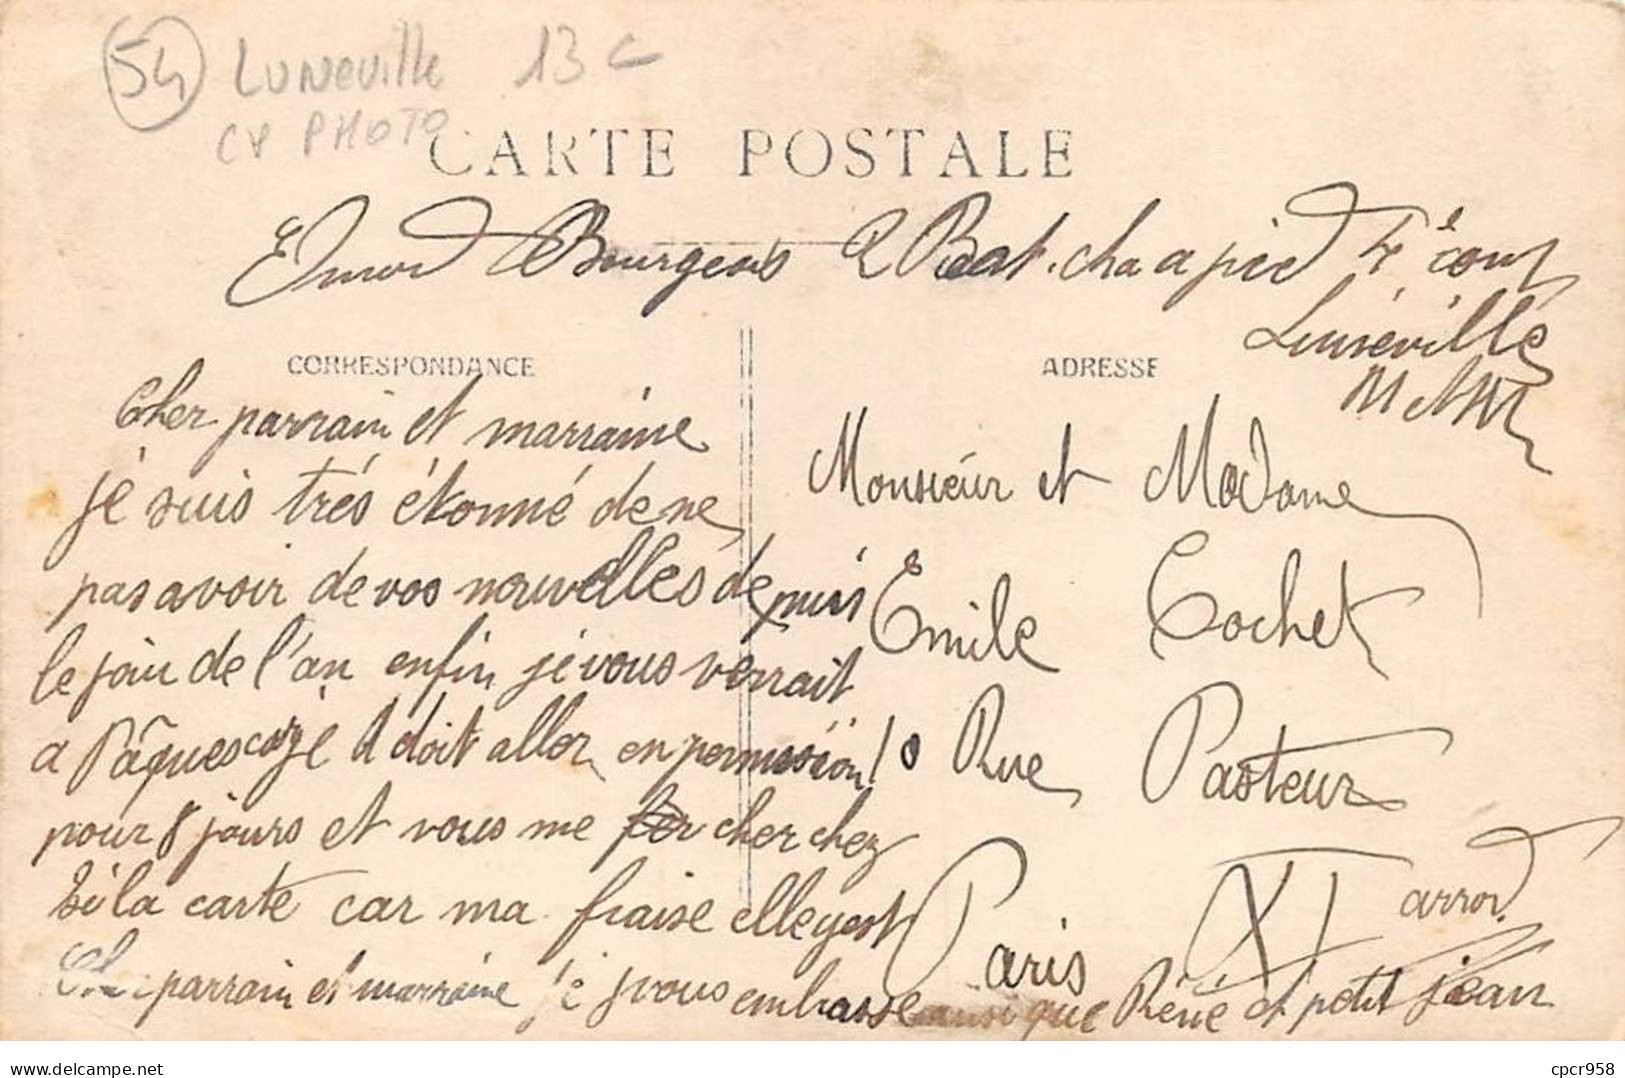 54 Luneville 13
CP PHOTO
CARTE POSTALE
Bourgeois 2 Bat. cha a pied 4e
Lunéville
M et M
CORRESPONDANCE
ADRESSE
Cher parrain et marraine
je suis trés étonné de ne
pas avoir de vos nouvelles depuis
le jour de l'an enfin je vous verrait
a Pâques car je doit aller en permission
pour 8 jours et vous me cherchez
si la carte car ma fraise elle y est
Cher parrain et marraine je vous embrasse ainsi que Réné et petit jean
Monsieur et Madame
Emile Cochet
10 Rue Pasteur
Paris XI arrond.
Delcampe.net
cpcr958